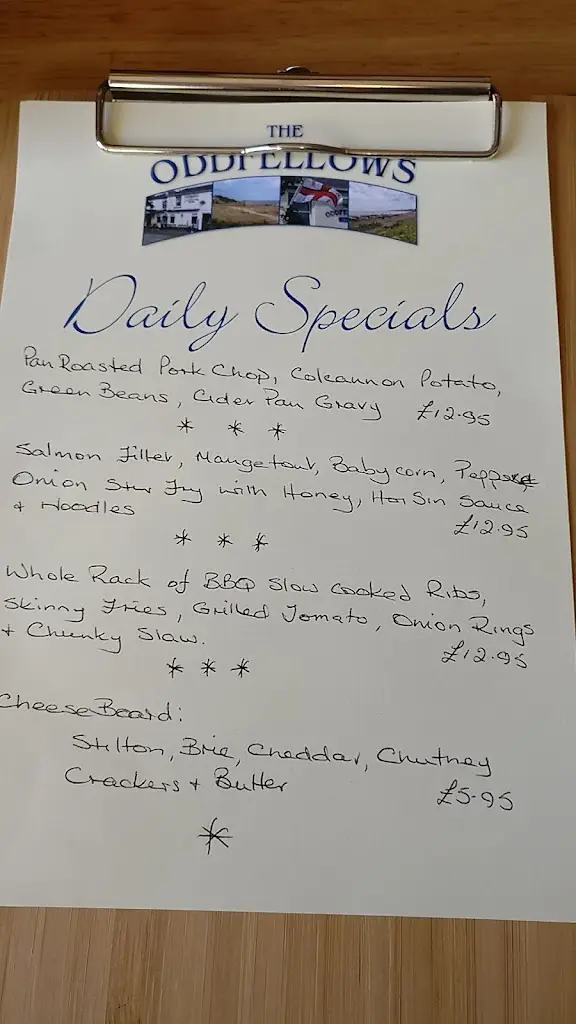 THE
ODDFELLOWS
Daily Specials
Pan Roasted Pork Chop, Colcannon Potato,
Green Beans, Cider Pan Gravy £12.95
* * *
Salmon Fillet, Mangetout, Baby corn, Pepper
Onion Stir Fry with Honey, Hoi Sin Sauce
+ Noodles £12.95
* * *
Whole Rack of BBQ Slow Cooked Ribs,
Skinny Fries, Grilled Tomato, Onion Rings
+ Chunky Slaw. £12.95
* * *
Cheese Board:
Stilton, Brie, Cheddar, Chutney
Crackers + Butter £5.95
*